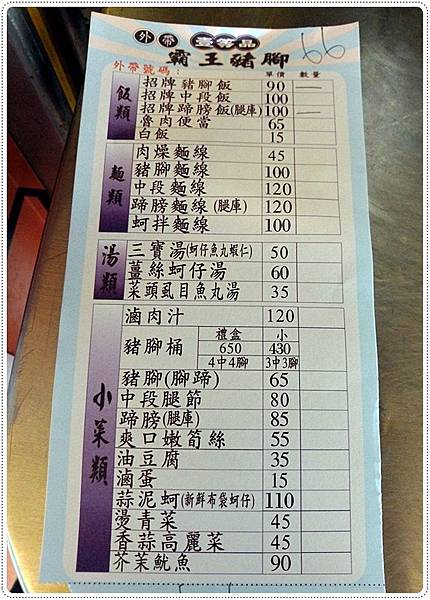 外帶 壹等品 66
霸王豬腳
外帶號碼： 單價 數量
飯類
招牌豬腳飯 90 一
招牌中段飯 100
招牌蹄膀飯(腿庫) 100 一
魯肉便當 65
白飯 15
麵類
肉燥麵線 45
豬腳麵線 100
中段麵線 120
蹄膀麵線(腿庫) 120
蚵拌麵線 100
湯類
三寶湯(蚵仔魚丸蝦仁) 50
薑絲蚵仔湯 60
菜頭虱目魚丸湯 35
小菜類
滷肉汁 120
豬腳桶 禮盒 小
650 430
4中4腳 3中3腳
豬腳(腳蹄) 65
中段腿節 80
蹄膀(腿庫) 85
爽口嫩筍絲 55
油豆腐 35
滷蛋 15
蒜泥蚵(新鮮布袋蚵仔) 110
燙青菜 45
香蒜高麗菜 45
芥茉魷魚 90